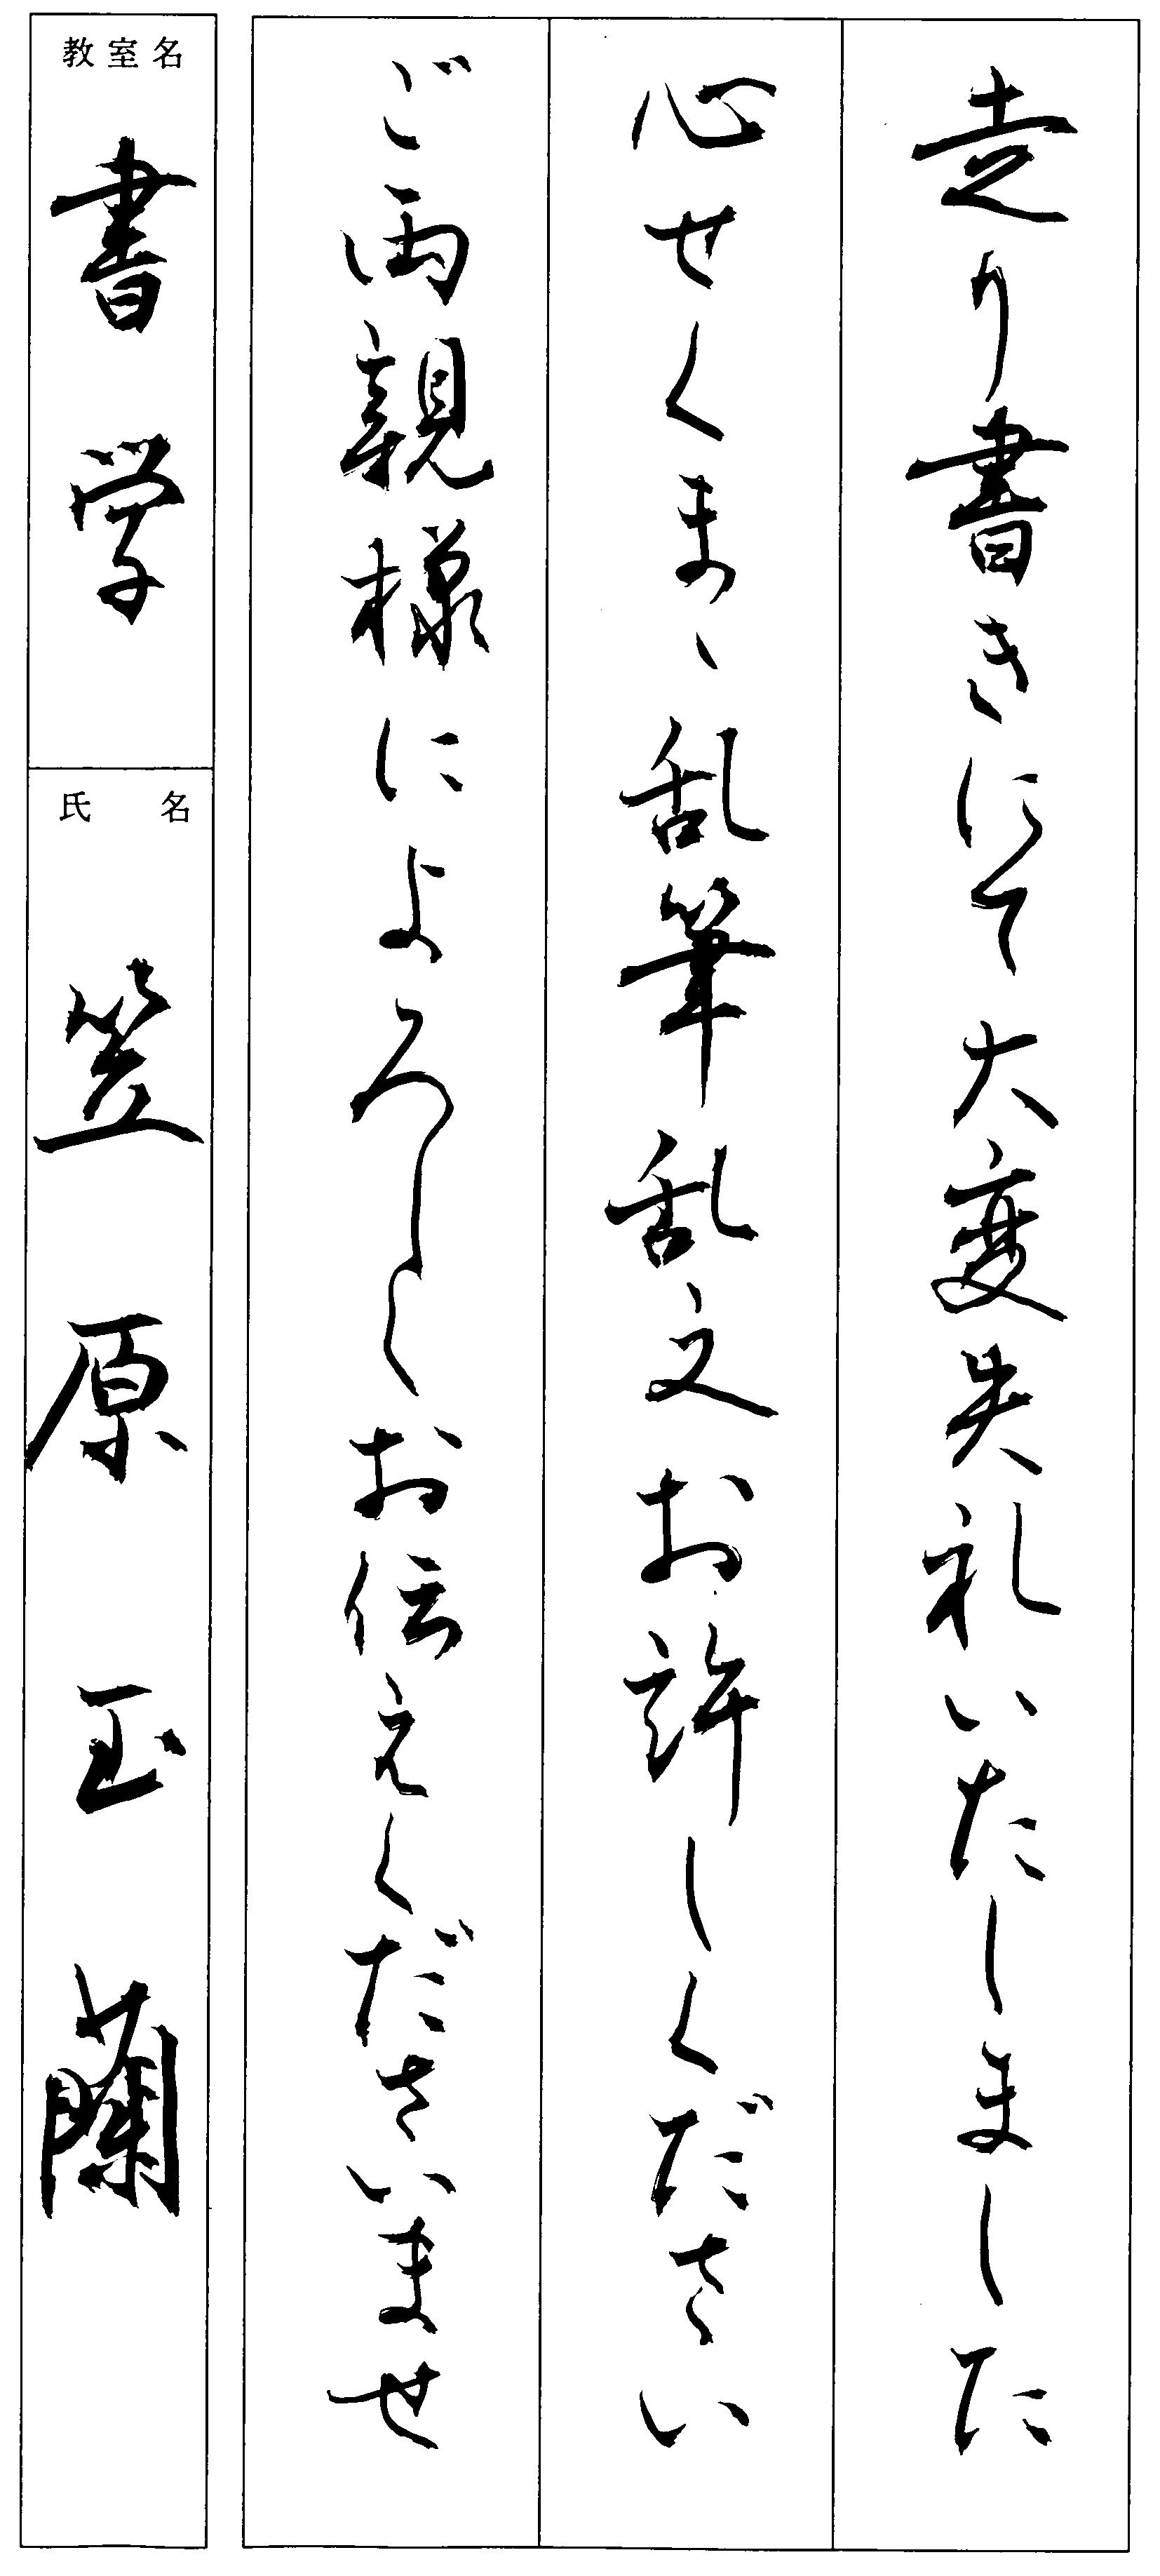 走り書きにて大変失礼いたしました
心せくまゝ乱筆乱文お許しください
ご両親様によろしくお伝えくださいませ
教室名
書学
氏名
笠原玉蘭